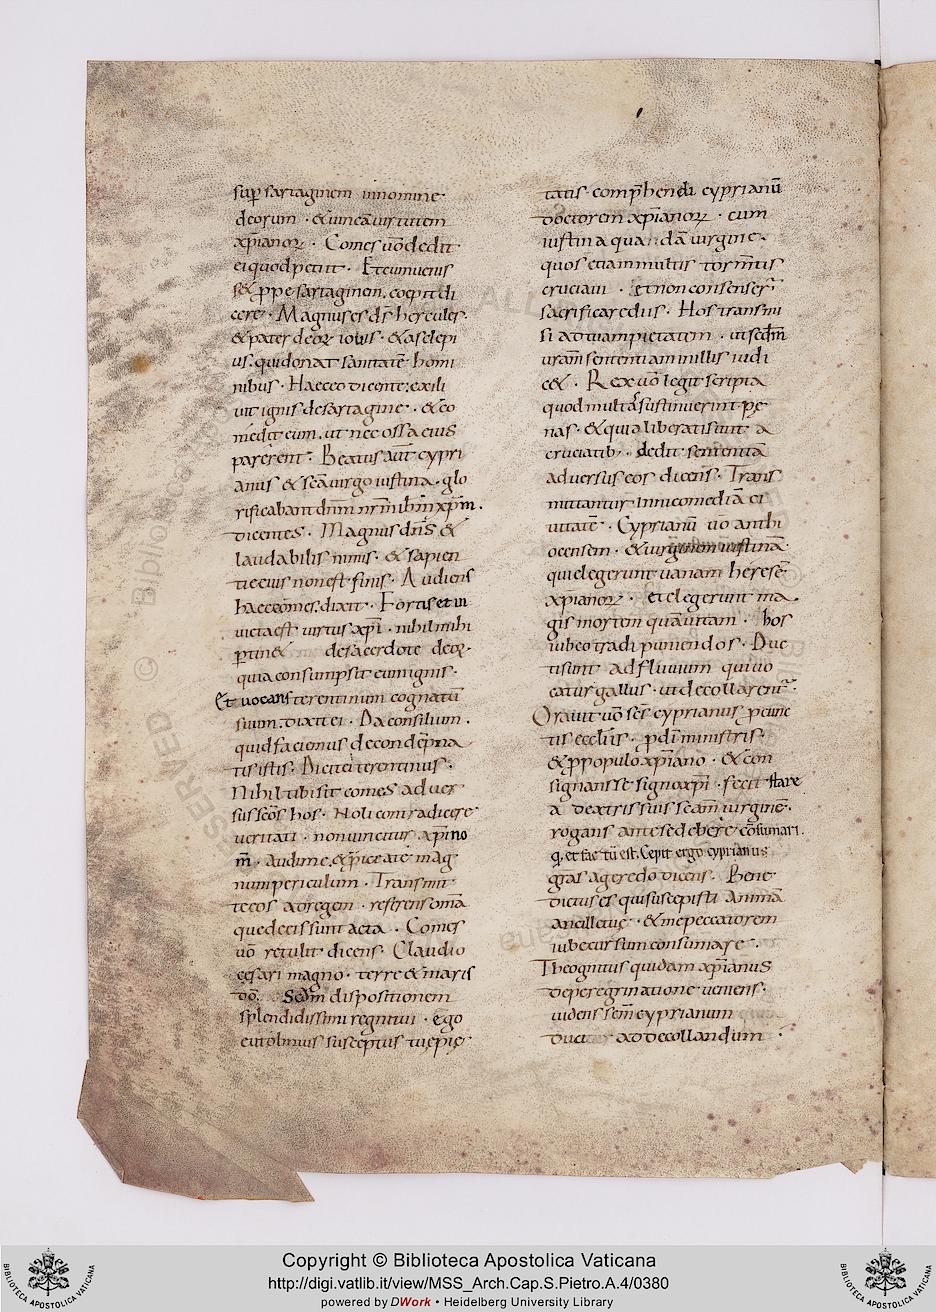 sup sartaginem innomine·
deorum · & uincã uirtutem
xp̄ianoꝝ · Comes uō dedit·
ei quod petiit · Et cum uenis
s& ꝓpe sartaginem. coepit di
cere · Magnus es d̄s hercules·
& pater deoꝝ iouis · & asclepi
us. qui donat sanitatē homi
nibus · Haec eo dicente; exili
uit ignis de sartagine · & co
medit eum. ut nec ossa eius
parerent · Beatus aūt cypri
anus & sc̄a uirgo iustina · glo
rificabant dn̄m nr̄m ih̄m xp̄m ·
dicentes · Magnus dn̄s &
laudabilis nimis · & sapien
tie eius non est finis · Audiens
haec comes. dixit · Fortis et in
uicta est uirtus xp̄i · nihil mihi
ꝑtin& de sacerdote deoꝝ·
quia consumpsit eum ignis ·
Et uocans terentinum cognatū
suum. dixit ei · Da consilium ·
quid facimus de condēpna
tis istis · Dicit ei terentinus ·
Nihil tibi sit comes aduer
sus sc̄os hos · Noli contradicere
ueritati · non uincitur xp̄i no
m̄ · audi me, mag
num periculum · Transmit
te eos ad regem · referens om̄a
que decis sunt acta · Comes
uō retulit dicens · Claudio
cęsari magno · terre & maris
dō · Sc̄dm dispositionem
splendidissimi regni tui · ego
eutolmius susceptus tuę pię
tatis · comp̄hendi cyprianū
doctorem xp̄ianoꝝ · cum
iustina quadā uirgine ·
quos etiam multis torm̄tis
cruciaui · & non consenser̄
sacrificare diis · Hos transmi
si ad tuam pietatem · ut sc̄dm
uram̄ sententiam illis iudi
c& · Rex uō legit scripta
quod multa sustinuerint pę
nas · & quia liberati sunt a
cruciatib; · dedit sententiā
aduersus eos dicens · Trans
mittantur in nicomediā ci
uitatē · Cyprianū uō anthi
ocensem · & uirginem iustinā·
qui elegerunt uanam heresē
xp̄ianoꝝ · et elegerunt ma
gis mortem quā uitam · hos
iubeo tradi puniendos · Duc
ti sunt ad fluuium qui uo
catur gallus · ut decollarent̃ ·
Orauit uō sc̄s cyprianus ꝓ cunc
tis eccl̄iis · ꝓ dī ministris·
& ꝓ populo xp̄iano · & con
signans se signo xp̄i · fecit stare
a dextris suis sc̄am uirginē ·
rogans ante se deberе cōsumari ·
q, et fac tū est. Cepit ergo cyprianus
gr̄as agere dō dicens · Bene
dictus es qui suscepisti animā
ancille tuę · & me peccatorem
iube cursum consumare ·
Theognitus quidam xp̄ianus
de peregrinatione ueniens ·
uidens sc̄m cyprianum
duci ad decollandum ·
Copyright © Biblioteca Apostolica Vaticana
http://digi.vatlib.it/view/MSS_Arch.Cap.S.Pietro.A.4/0380
powered by DWork • Heidelberg University Library